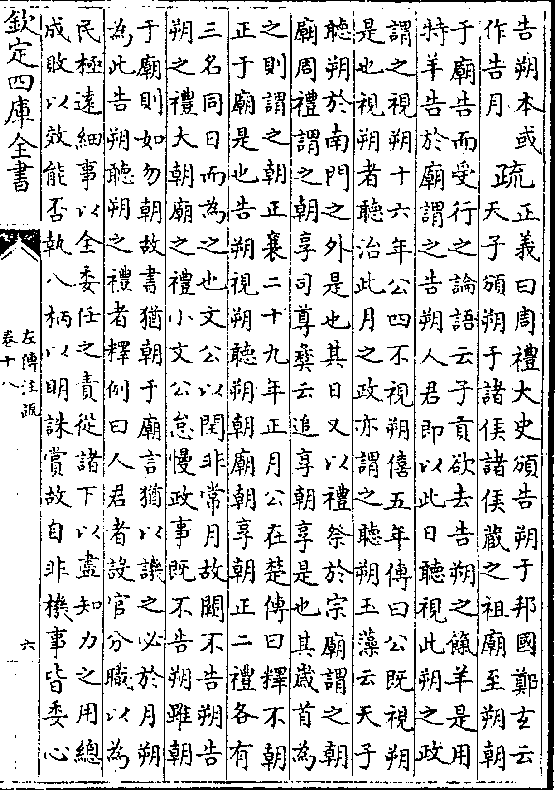 告朔本或
作告月　疏
正義曰周禮大史頒告朔于邦國鄭玄云
天子頒朔于諸侯諸侯藏之祖廟至朔朝
于廟告而受行之論語云子貢欲去告朔之餼羊是用
特羊告於廟謂之告朔人君即以此日聽視此朔之政
謂之視朔十六年公四不視朔僖五年傳曰公既視朔
是也視朔者聽治此月之政亦謂之聽朔玉藻云天子
聽朔於南門之外是也其日又以禮祭於宗廟謂之朝
廟周禮謂之朝享司尊彝云追享朝享是也其歲首為
之則謂之朝正襄二十九年正月公在楚傳曰釋不朝
正于廟是也告朔視朔聽朔朝廟朝享朝正二禮各有
三名同日而為之也文公以閏非常月故闕不告朔告
朔之禮大朝廟之禮小文公怠慢政事既不告朔雖朝
于廟則如勿朝故書猶朝于廟言猶以譏之必於月朔
為此告朔聽朔之禮者釋例曰人君者設官分職以為
民極遠細事以全委任之責縱諸下以盡知力之用總
成敗以效能否執八柄以明誅賞故自非機事皆委心
欽定四庫全書
左傳注疏
卷十八
六